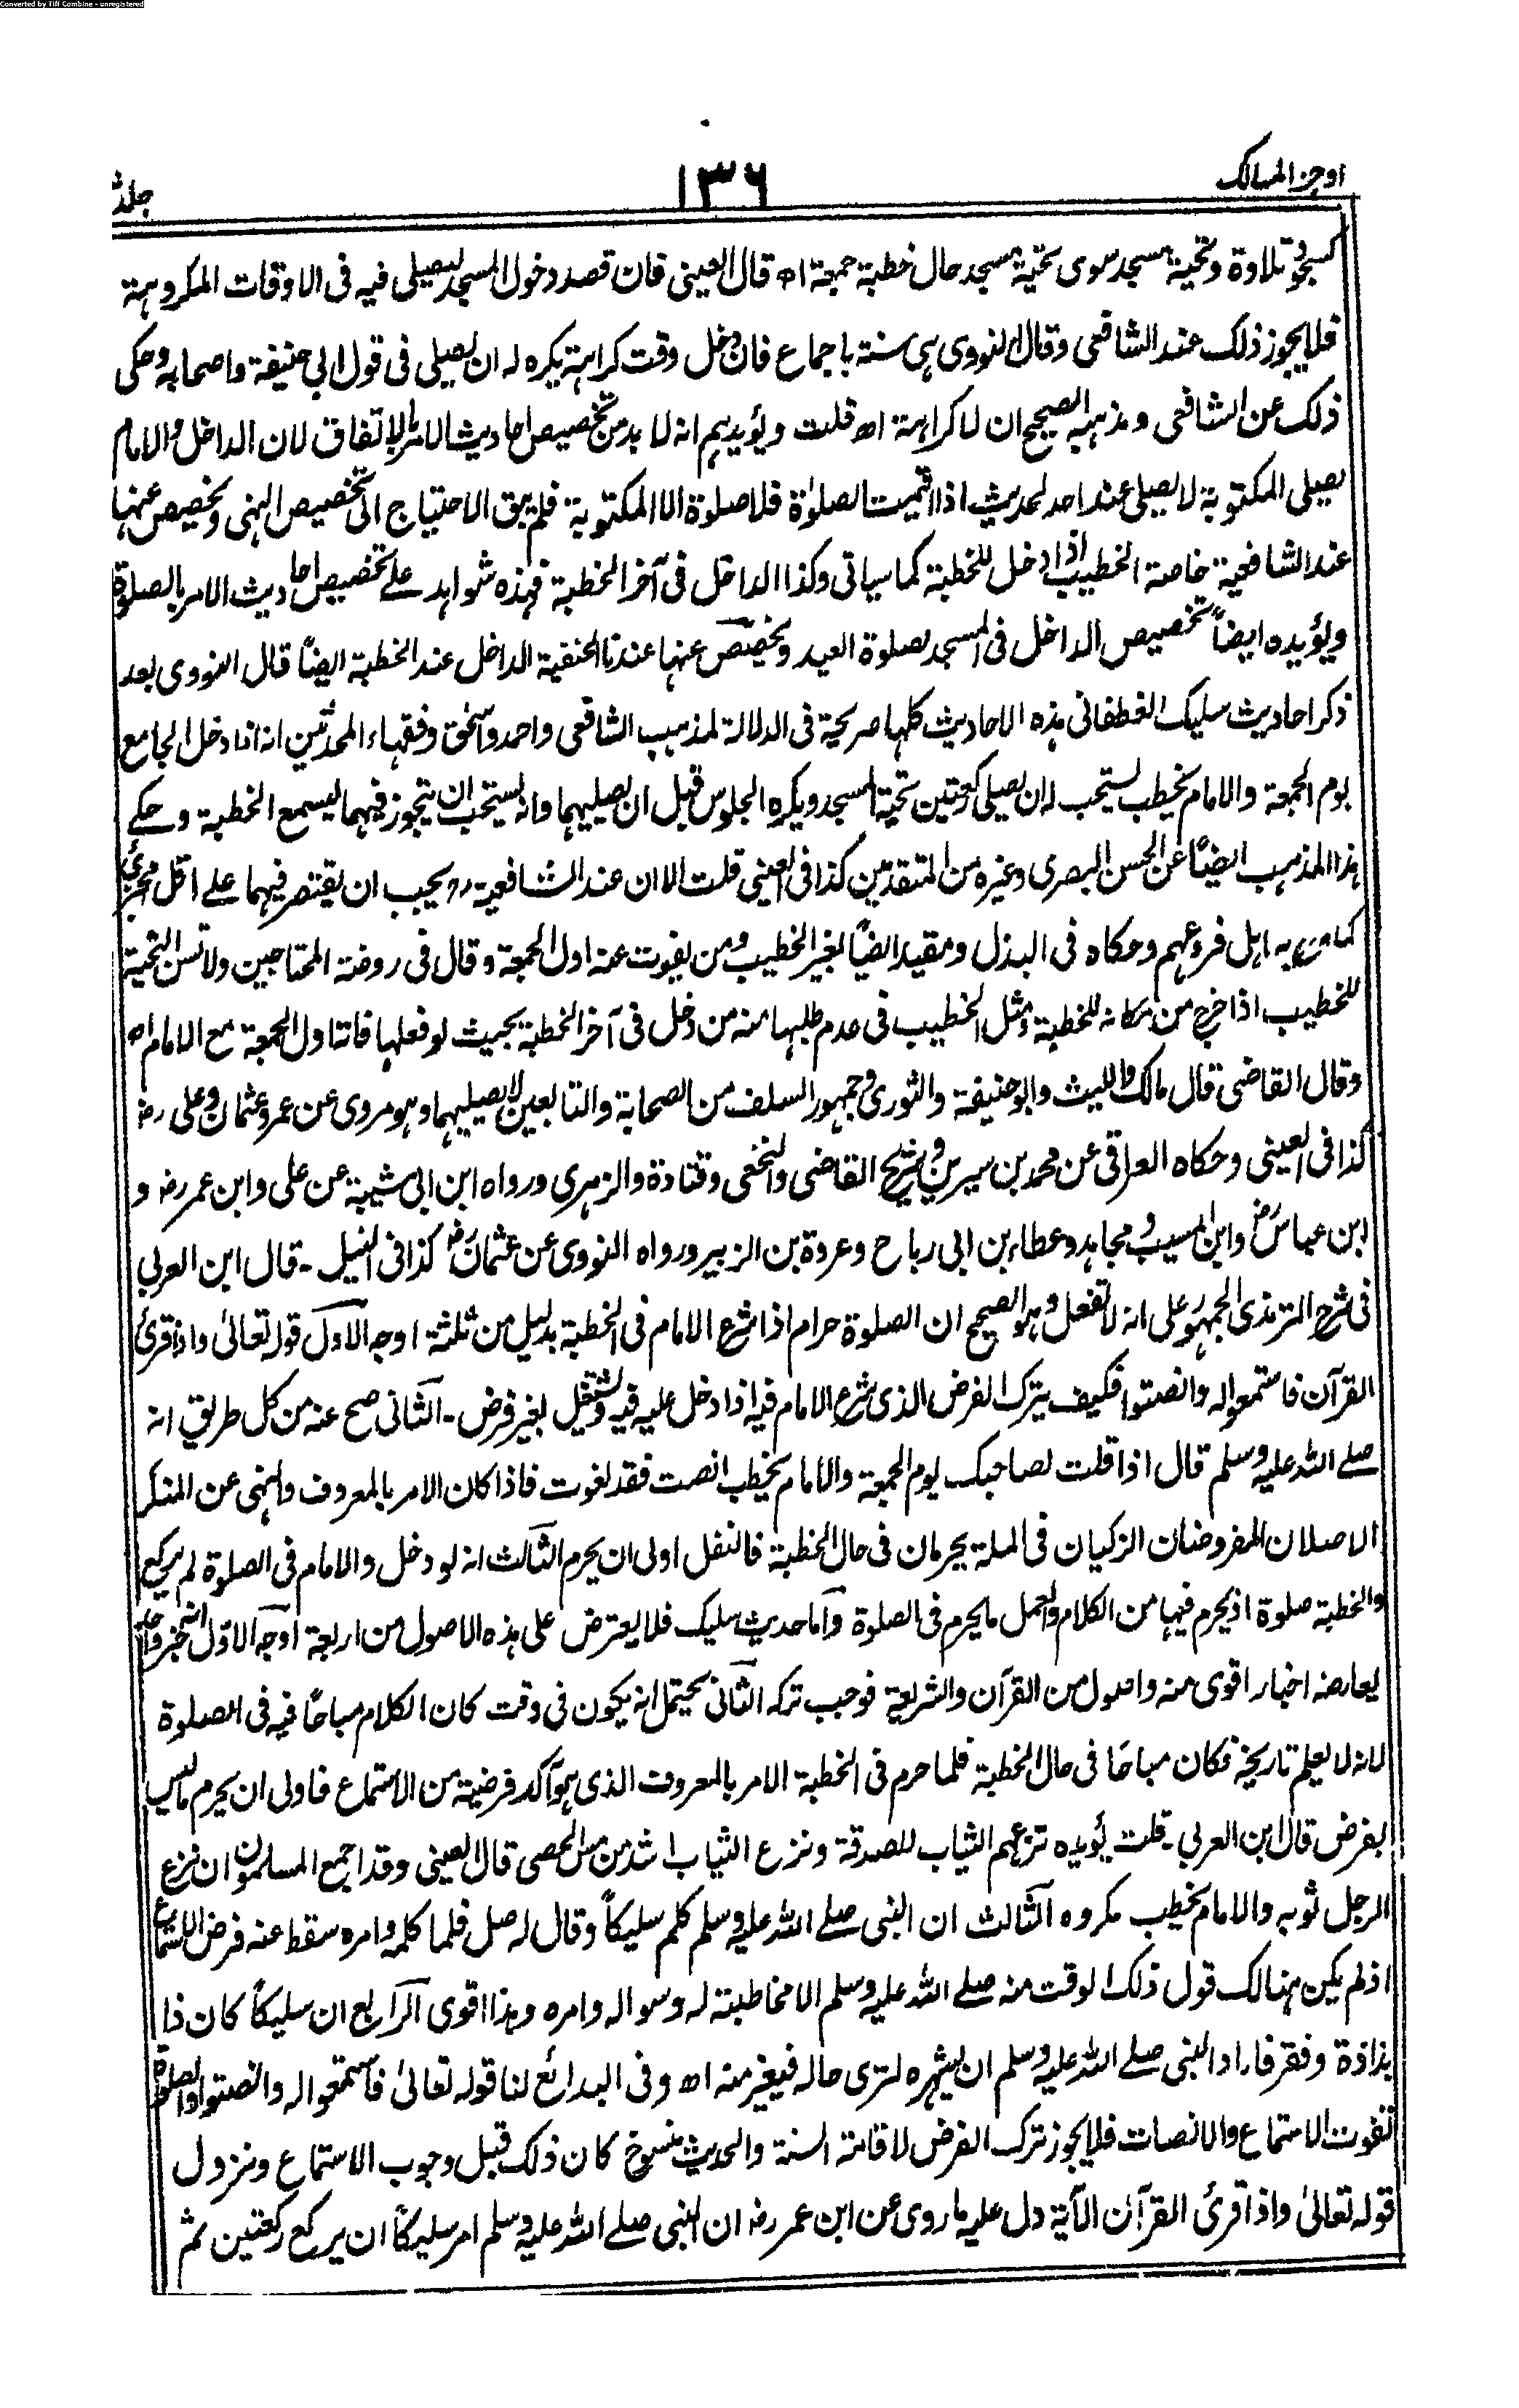 Converted by Tiff Combine - unregistered
اوجز المسالك
١٣٦
جلد
كسجود تلاوة وتحية مسجد سوى تحية مسجد حال خطبة جمعة اھ قال العينى فان قصد دخول المسجد ليصلى فيه فى الاوقات المكروهة
فلا يجوز ذلك عند الشافعى وقال النووى هى سنة باجماع فان دخل وقت كراهة يكره له ان يصلى فى قول ابى حنيفة واصحابه وحكى
ذلك عن الشافعى ومذهبه الصحيح ان لا كراهة اھ قلت ويؤيدهم انه لا بد من تخصيص احاديث الامر بالاتفاق لان الداخل والامام
يصلى المكتوبة لا يصلى عند احد لحديث اذا اقيمت الصلوٰة فلا صلوة الا المكتوبة فلم يبق الاحتياج الى تخصيص النهى وتخصيص عنها
عند الشافعية خاصة الخطيب اذا دخل للخطبة كما سياتى وكذا الداخل فى آخر الخطبة فهذه شواهد على تخصيص احاديث الامر بالصلوة
ويؤيده ايضاً تخصيص الداخل فى المسجد بصلوة العيد ويخصّص عنها عندنا الحنفية الداخل عند الخطبة ايضاً قال النووى بعد
ذكر احاديث سليك الغطفانى هذه الاحاديث كلها صريحة فى الدلالة لمذهب الشافعى واحمد واسحٰق وفقهاء المحدثين انه اذا دخل الجامع
يوم الجمعة والامام يخطب يستحب له ان يصلى ركعتين تحية المسجد ويكره الجلوس قبل ان يصليهما وانه يستحب ان يتجوز فيهما ليسمع الخطبة وحكے
هذا المذهب ايضاً عن الحسن البصرى وغيره من المتقدمين كذا فى العينى قلت الا ان عند الشافعية يجب ان يقتصر فيهما على اقل مجزئ
كما صرح به اهل فروعهم وحكاه فى البذل ومقيد ايضاً بغير الخطيب ومن يفوت عنه اول الجمعة وقال فى روضة المحتاجين ولا تسن التحية
للخطيب اذا خرج من مكانه للخطبة ومثل الخطيب فى عدم طلبها منه من دخل فى آخر الخطبة بحيث لو فعلها فاتتا ول الجمعة مع الامام اھ
وقال القاضى قال مالك والليث وابو حنيفة والثورى وجمهور السلف من الصحابة والتابعين لا يصليهما وهو مروى عن عمر وعثمان وعلى رض
كذا فى العينى وحكاه العراقى عن محمد بن سيرين وشريح القاضى والنخعى وقتادة والزهرى ورواه ابن ابى شيبة عن على وابن عمر رض و
ابن عباس رض وابن المسيب ومجاهد وعطاء بن ابى رباح وعروة بن الزبير ورواه النووى عن عثمان رض كذا فى النيل - قال ابن العربى
فى شرح الترمذى الجمهور على انه لا تفعل وهو الصحيح ان الصلوة حرام اذا شرع الامام فى الخطبة بدليل من ثلثة اوجه الاول قوله تعالىٰ واذا قرئ
القرآن فاستمعوا له وانصتوا فكيف يترك الفرض الذى شرع الامام فيه اذا دخل عليه فيه ويشتغل بغير فرض - الثانى صح عنه من كل طريق انه
صلے الله عليه وسلم قال اذا قلت لصاحبك يوم الجمعة والامام يخطب انصت فقد لغوت فاذا كان الامر بالمعروف والنهى عن المنكر
الاصلان المفروضان الزكيان فى الملة يحرمان فى حال الخطبة فالنفل اولى ان يحرم الثالث انه لو دخل والامام فى الصلوة لم يركع
والخطبة صلوة اذ يحرم فيها من الكلام والعمل ما يحرم فى الصلوة واما حديث سليك فلا يعترض على هذه الاصول من اربعة اوجه الاول انه خبر واحد
يعارضه اخبار اقوى منه واصول من القرآن والشريعة فوجب تركه الثانى يحتمل انه يكون فى وقت كان الكلام مباحًا فيه فى الصلوة
لانه لا يعلم تاريخه فكان مباحًا فى حال الخطبة فلما حرم فى الخطبة الامر بالمعروف الذى هو آكد فرضية من الاستماع فاولى ان يحرم ما ليس
بفرض قال ابن العربى - قلت يؤيده نزعهم الثياب للصدقة ونزع الثياب اشد من مس الحصى قال العينى وقد اجمع المسلمون ان نزع
الرجل ثوبه والامام يخطب مكروه الثالث ان النبى صلے الله عليه وسلم كلم سليكاً وقال له صل فلما كلمه وامره سقط عنه فرض الاستماع
اذ لم يكن هنالك قول ذلك الوقت منه صلے الله عليه وسلم الا مخاطبته له وسواله وامره وهذا اقوى الرابع ان سليكاً كان ذا
بذاذة وفقر فاراد النبى صلے الله عليه وسلم ان يشهره لترى حاله فيغير منه اھ وفى البدائع لنا قوله تعالىٰ فاستمعوا له وانصتوا والصلوة
تفوت الاستماع والانصات فلا يجوز ترك الفرض لاقامة السنة والحديث منسوخ كان ذلك قبل وجوب الاستماع ونزول
قوله تعالىٰ واذا قرئ القرآن الآية دل عليه ما روى عن ابن عمر رض ان النبى صلے الله عليه وسلم امر سليكاً ان يركع ركعتين ثم